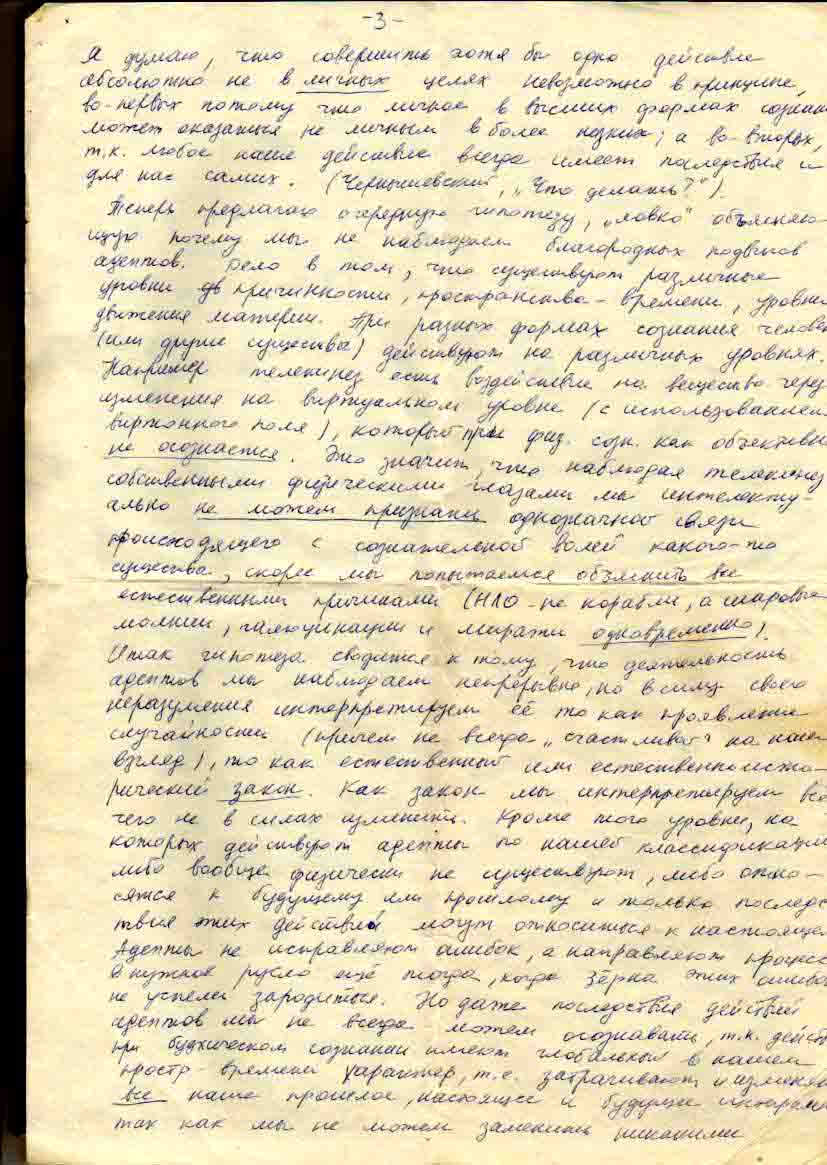 -3-
Я думаю, что совершить хотя бы одно действие
абсолютно не в личных целях невозможно в принципе,
во-первых потому что личное в высших формах сознан
может оказаться не личным в более низких; а во-вторых,
т.к. любое наше действие всегда имеет последствия и
для нас самих. (Чернышевский, „Что делать?").
Теперь предлагаю очередную гипотезу, „ловко" объясняю-
щую почему мы не наблюдаем благородных подвигов
адептов. Дело в том, что существуют различные
уровни причинности, пространства-времени, уровни
движения материи. При разных формах сознания человек
(или другие существа) действуют на различных уровнях.
Например телекинез есть воздействие на вещество через
изменения на виртуальном уровне (с использованием
виртонного поля), который при физ. созн. как объективн
не осознается. Это значит, что наблюдая телекинез
собственными физическими глазами мы интелекту-
ально не можем признать однозначной связи
происходящего с сознательной волей какого-то
существа, скорее мы попытаемся объяснить все
естественными причинами (НЛО-не корабли, а шаровые
молнии, галюцинации и миражи одновременно).
Итак гипотеза сводится к тому, что деятельность
адептов мы наблюдаем непрерывно, но в силу своего
неразумения интерпретируем её то как проявление
случайности (причем не всегда „счастливой" на наш
взгляд), то как естественный или естественноисто-
рический закон. Как закон мы интерпретируем все
чего не в силах изменить. Кроме того уровни, на
которых действуют адепты по нашей классификации
либо вообще физически не существуют, либо отно-
сятся к будущему или прошлому и только последс
твия этих действий могут относиться к настоящем
Адепты не исправляют ошибок, а направляют процесс
в нужное русло ещё тогда, когда зёрна этих ошибок
не успели зародиться. Но даже последствия действий
адептов мы не всегда можем осознавать, т.к. действ
при будхическом сознании имеют глобальный в нашем
простр-времени характер, т.е. затрагивают и изменяют
все наше прошлое, настоящее и будущее
так как мы не можем заменить никакими